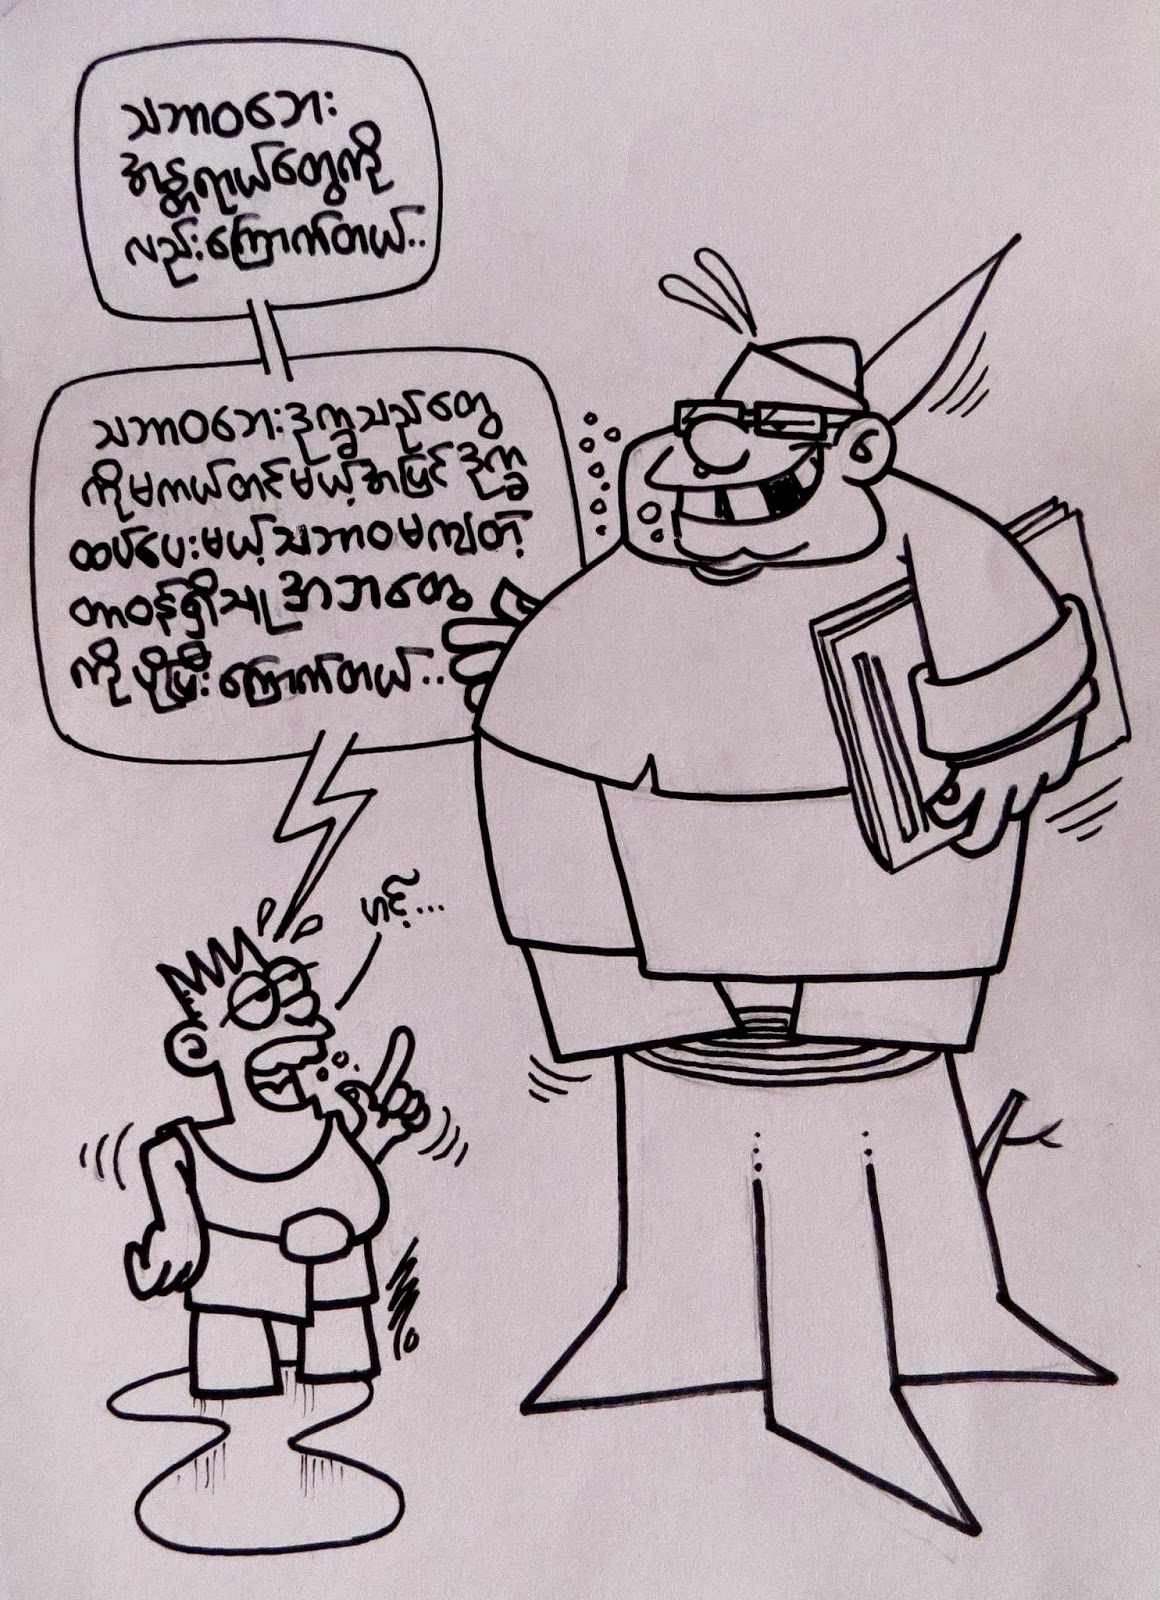 သဘာဝဘေး
အန္တရာယ်တွေကို
လည်းကြောက်တယ်..
သဘာဝဘေးဒုက္ခသည်တွေ
ကိုမကယ်တင်မယ့်အပြင် ဒုက္ခ
ထပ်ပေးမယ့်သဘာဝမကျတဲ့
တာဝန်ရှိသူအာဘတွေ
ကိုပိုပြီးကြောက်တယ်..
ဟင့်...